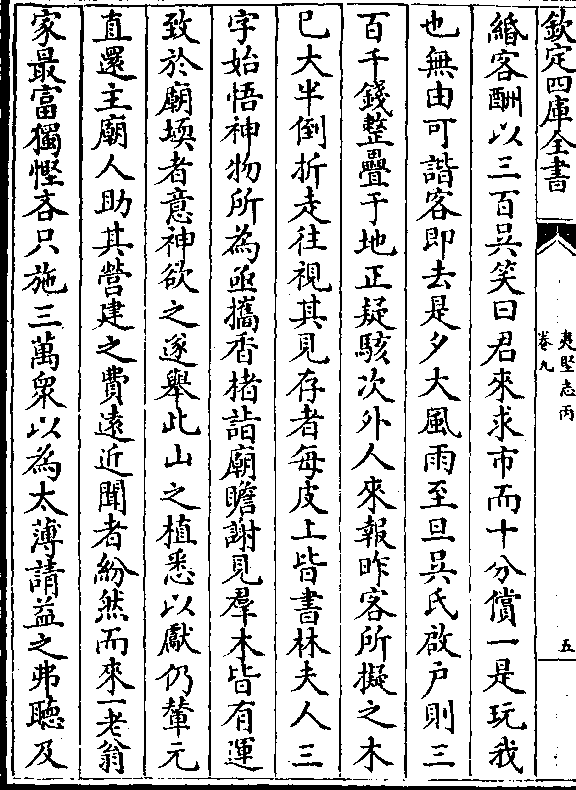 欽定四庫全書
夷堅志丙
卷九
五
緡客酬以三百吳笑曰君來求市而十分償一是玩我
也無由可諧客即去是夕大風雨至旦吳氏啟户則三
百千錢整疊于地正疑駭次外人來報昨客所擬之木
已大半倒折走往視其見存者每皮上皆書林夫人三
字始悟神物所為亟攜香楮詣廟瞻謝見羣木皆有運
致於廟堧者意神欲之遂舉此山之植悉以獻仍輦元
直還主廟人助其營建之費遠近聞者紛然而來一老翁
家最富獨慳吝只施三萬衆以為太薄請益之弗聽及